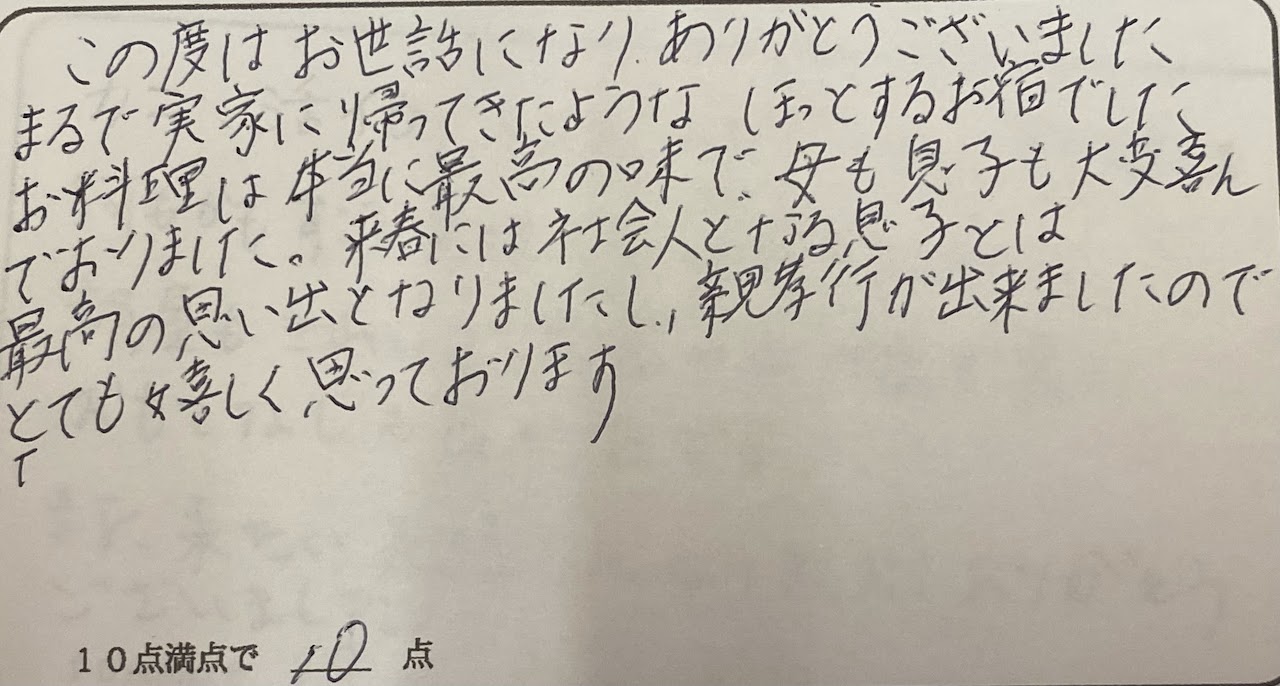 この度はお世話になり、ありがとうございました
まるで実家に帰ってきたような ほっとするお宿でした
お料理は本当に最高の味で、母も息子も大変喜ん
でおりました。来春には社会人となる息子とは
最高の思い出となりましたし、親孝行が出来ましたので
とても嬉しく思っております
10点満点で 10 点